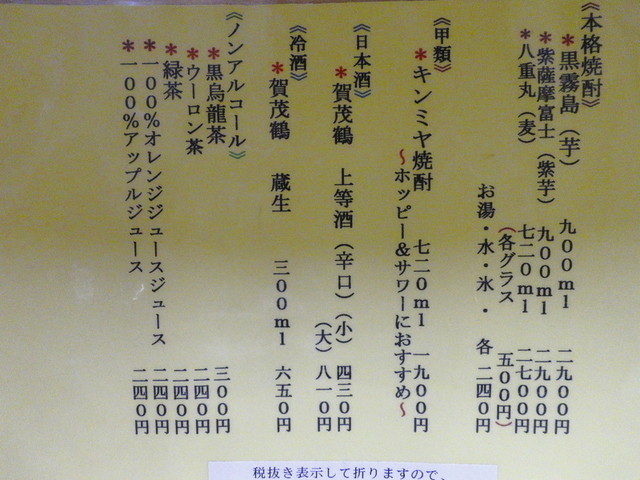 《本格焼酎》
*黒霧島（芋） 九００ｍｌ 二九００円
*紫薩摩富士（紫芋） 九００ｍｌ 二九００円
*八重丸（麦） 七二０ｍｌ 二七００円
（各グラス 五００円）
お湯・水・氷・ 各 二四０円
《甲類》
*キンミヤ焼酎 七二０ｍｌ 一九００円
～ホッピー＆サワーにおすすめ～
《日本酒》
*賀茂鶴 上等酒（辛口）（小） 四三０円
（大） 八一０円
《冷酒》
*賀茂鶴 蔵生 三００ｍｌ 六五０円
《ノンアルコール》
*黒烏龍茶 三００円
*ウーロン茶 二四０円
*緑茶 二四０円
*一００％オレンジジュースジュース 二四０円
*一００％アップルジュース 二四０円
税抜き表示して折りますので、